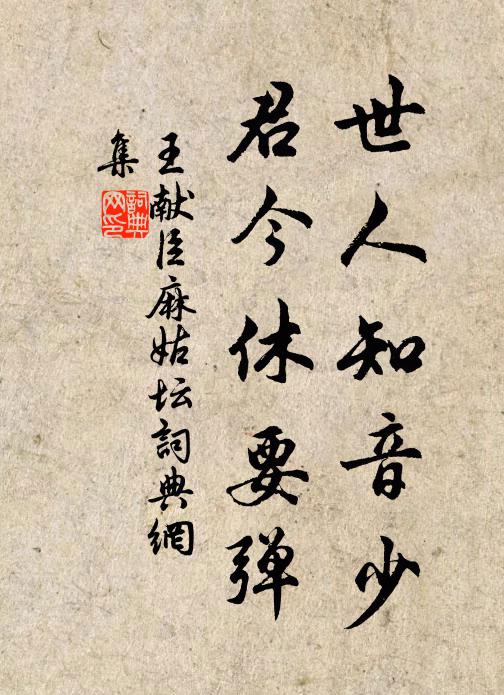 世人知音少
君今休要弹
王献臣麻姑坛詞典網
集
詞典網印